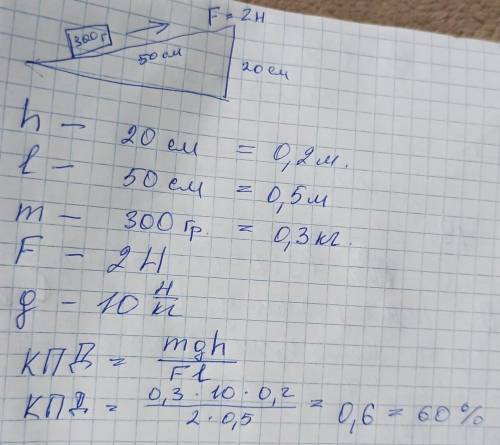 F = 2Н
300 г
50 см
20 см
h — 20 см = 0,2 м.
l — 50 см = 0,5 м
m — 300 гр. = 0,3 кг.
F — 2 Н
g — 10 Н/кг
КПД = mgh / Fl
КПД = 0,3 · 10 · 0,2 / 2 · 0,5 = 0,6 = 60 %